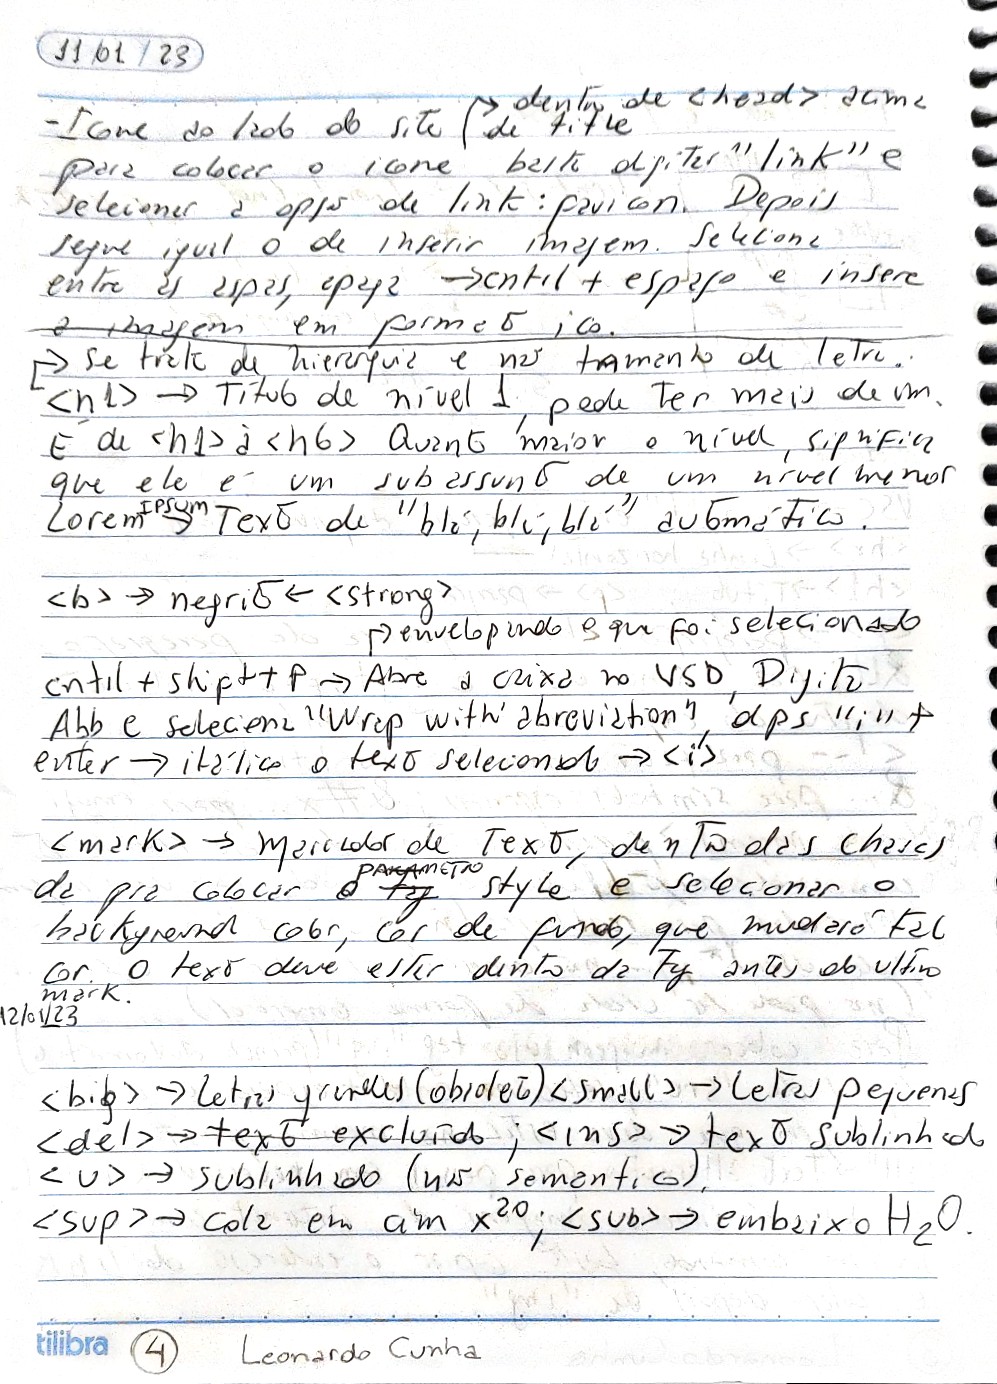 11/01/23
↱ dentro de <head> acima
-Ícone ao lado do site ( de title
para colocar o ícone basta digitar "link" e
selecionar a opção de link:favicon. Depois
segue igual o de inserir imagem. Selecione
entre as aspas, apaga →cntrl + espaço e insere
a imagem em formato ico.
↱ Se trata de hierarquia e não tamanho de letra.
<h1> → Título de nível 1, pode ter mais de um.
É de <h1> à <h6> Quanto maior o nível, significa
que ele é um subassunto de um nível menor
Lorem IPSUM → Texto de "blá, blá, blá" automático.
<b> → negrito ← <strong>
↱ envelopando o que foi selecionado
cntrl + shift + P → Abre a caixa no VSD, Digita
Abb e seleciona "Wrap with abreviation", dps "i" +
enter → itálico o texto selecionado → <i>
<mark> → Marcador de Texto, dentro das chaves
da pra colocar o PARAMETRO style e selecionar o
background color, cor de fundo, que mudará tal
cor. O texto deve estar dentro da Tg antes do ultimo
mark.
12/01/23
<big> → Letras grandes (obsoleto) <small> → Letras pequenas
<del> → texto excluído ; <ins> → texto sublinhado
<u> → sublinhado (não semantico).
<sup> → cola em cim x²⁰; <sub> → embaixo H₂O.
tilibra 4 Leonardo Cunha